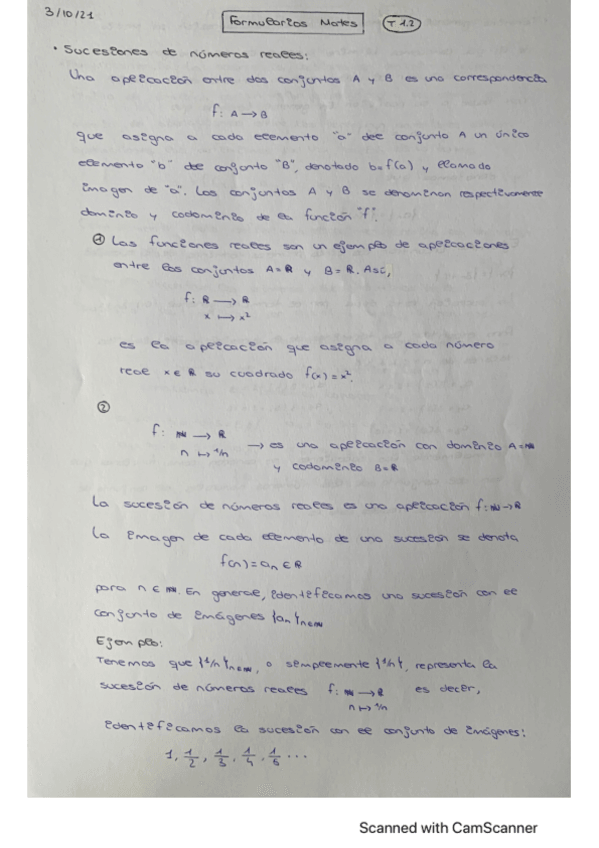 3/10/21
Formularios Mates
T 1.2
· Sucesiones de números reales:
Una aplicación entre dos conjuntos A y B es una correspondencia
f: A → B
que asigna a cada elemento "a" del conjunto A un único
elemento "b" del conjunto "B", denotado b=f(a) y llamado
imagen de "a". Los conjuntos A y B se denominan respectivamente
dominio y codominio de la función "f".
① Las funciones reales son un ejemplo de aplicaciones
entre los conjuntos A=ℝ y B=ℝ. Así,
f: ℝ → ℝ
x ↦ x²
es la aplicación que asigna a cada número
real x ∈ ℝ su cuadrado f(x)=x².
②
f: ℕ → ℝ
n ↦ 1/n
→ es una aplicación con dominio A=ℕ
y codominio B=ℝ
La sucesión de números reales es una aplicación f: ℕ→ℝ
La imagen de cada elemento de una sucesión se denota
f(n)=aₙ ∈ ℝ
para n ∈ ℕ. En general, identificamos una sucesión con el
conjunto de imágenes {aₙ}n∈ℕ
Ejemplo:
Tenemos que {1/n}n∈ℕ, o simplemente {1/n}, representa la
sucesión de números reales f: ℕ → ℝ es decir,
n ↦ 1/n
identificamos la sucesión con el conjunto de imágenes:
1, 1/2, 1/3, 1/4, 1/5 ...
Scanned with CamScanner